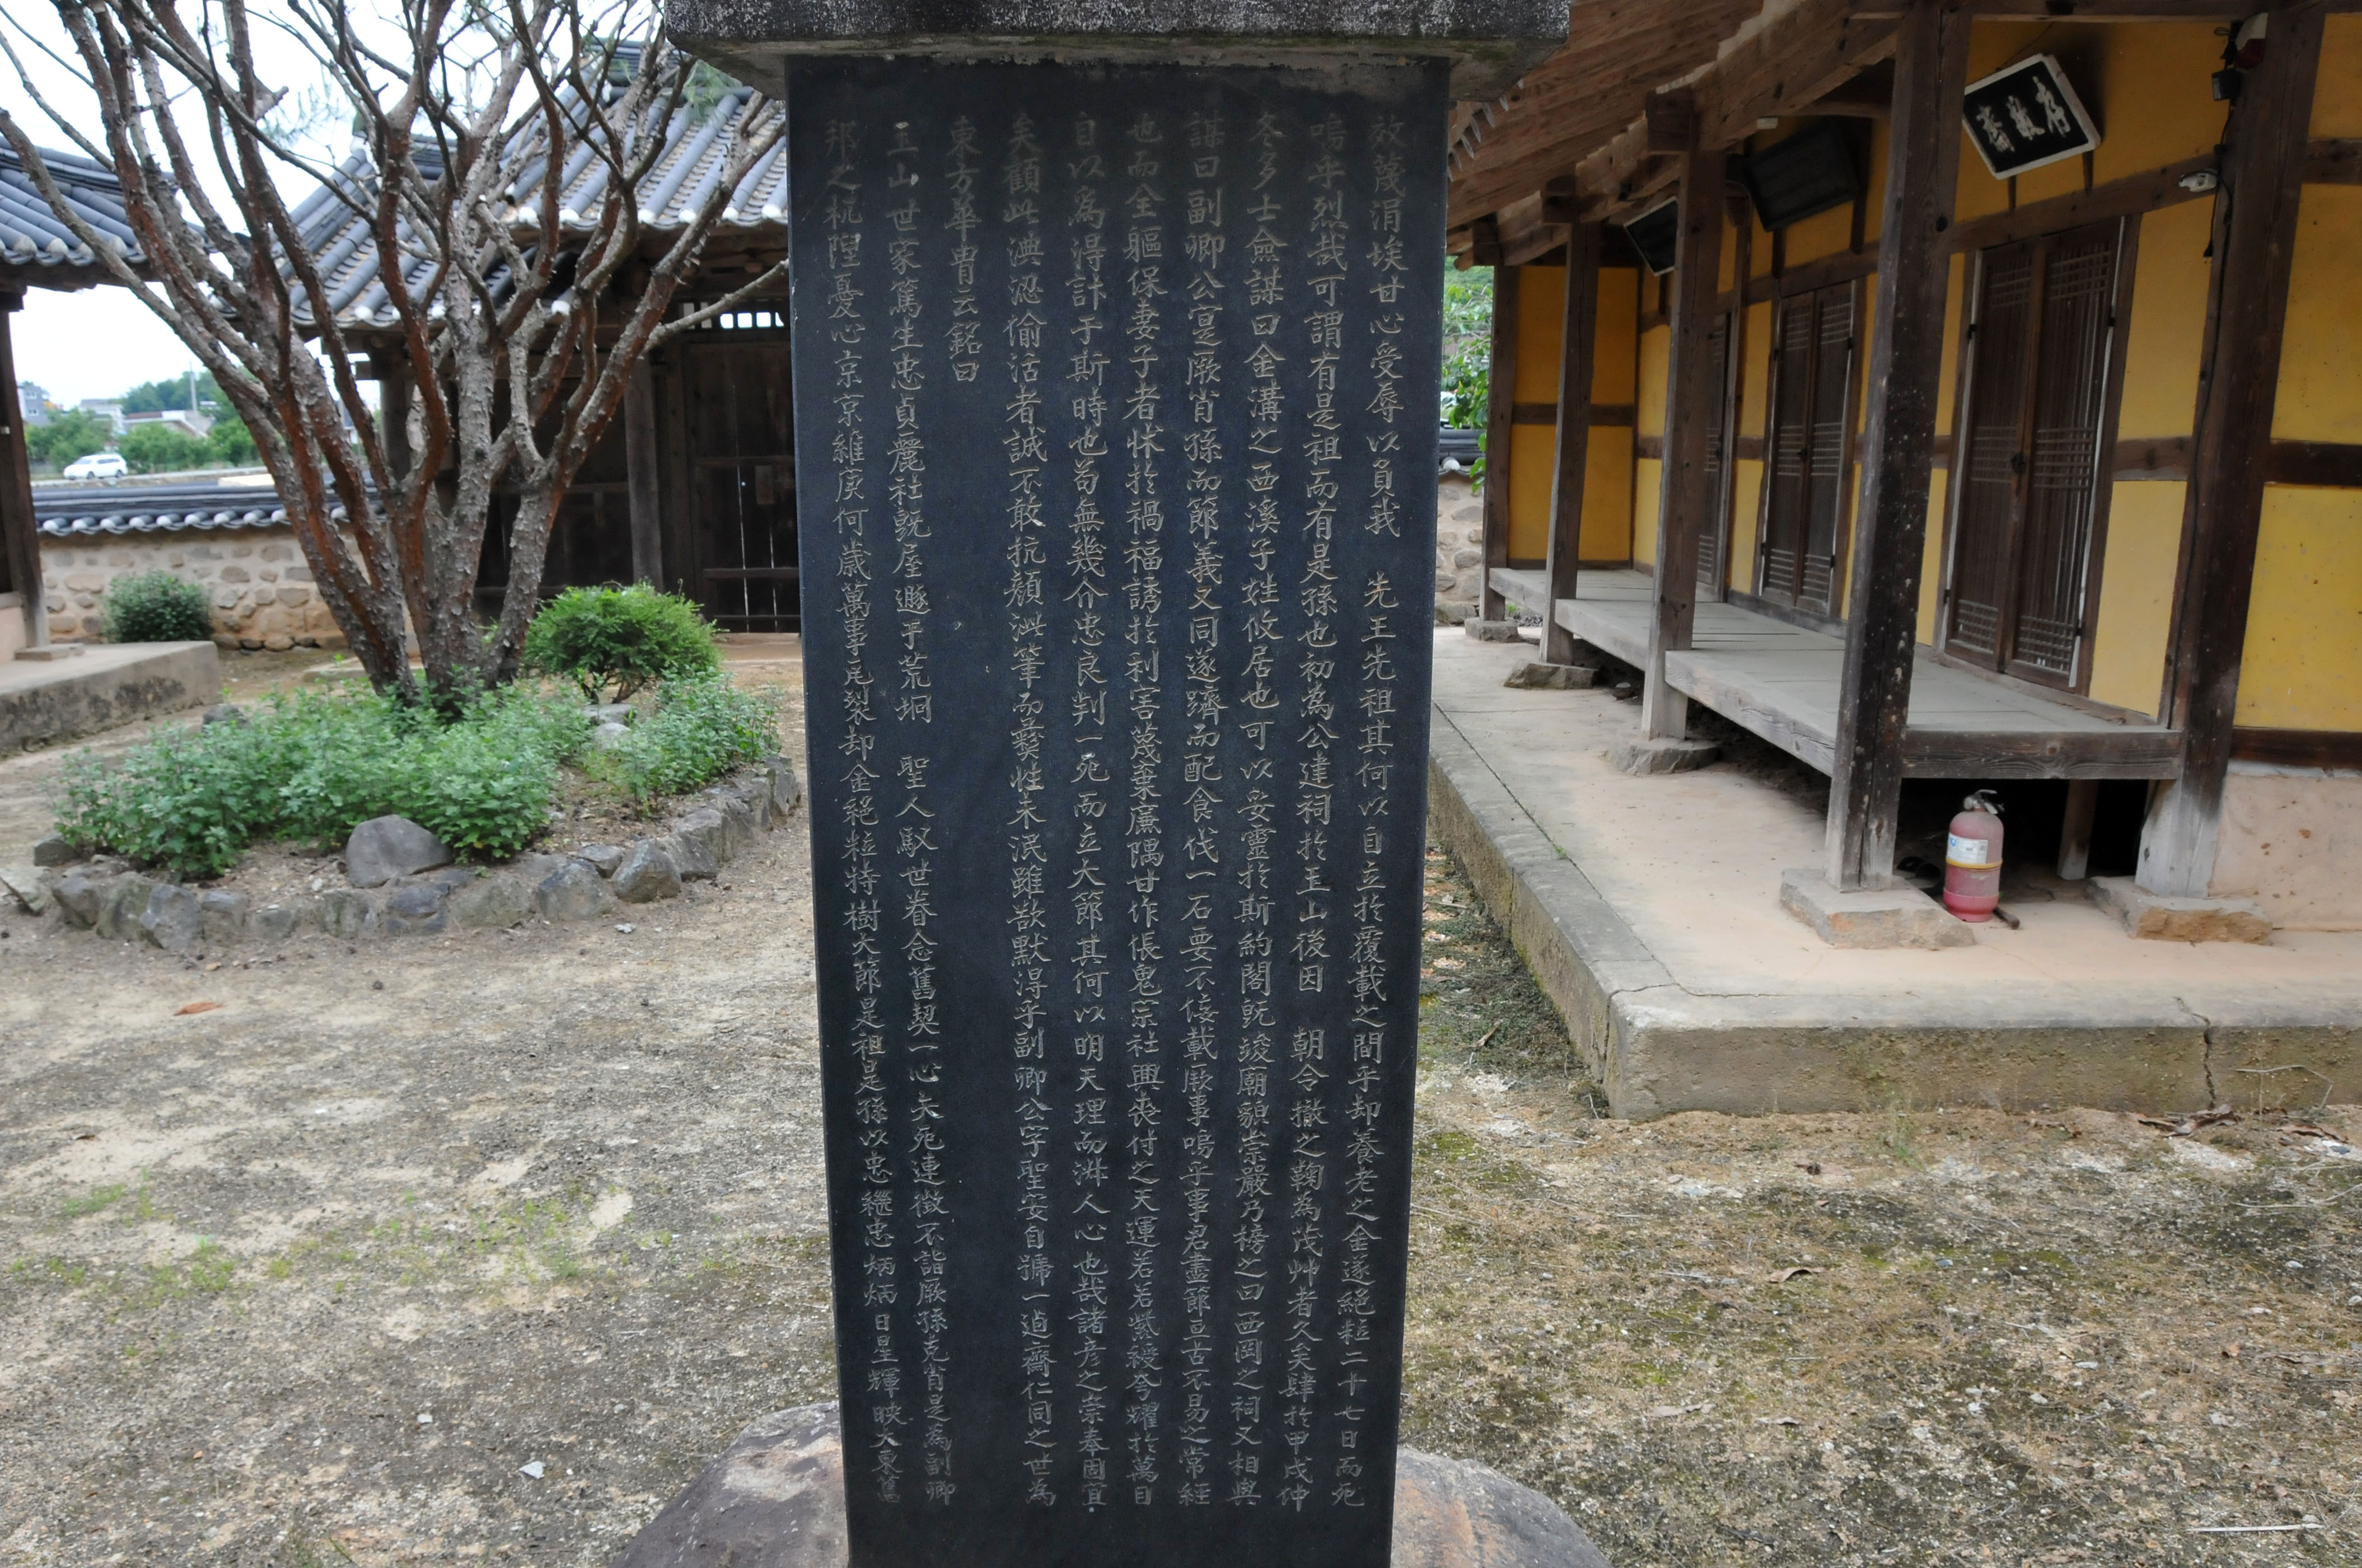 效蔑涓埃甘心受辱以負我 先王先祖其何以自立於覆載之間乎却養老之金遂絕粒二十七日而死
嗚乎烈哉可謂有是祖而有是孫也初為公建祠於玉山後因 朝令撤之鞠為茂艸者久矣肆於甲戌仲
冬多士僉謀曰金溝之西溪子姓攸居也可以妥靈於斯約閣旣竣廟貌崇嚴乃榜之曰西岡之祠又相與
謀曰副卿公寔厥肖孫而節義又同遂躋而配食伐一石要不佞載厥事嗚乎事君盡節亘古不易之常經
也而全軀保妻子者怵於禍福誘於利害蔑棄廉隅甘作倀鬼宗社興喪付之天運若若紫綬今耀於萬目
自以為得計于斯時也苟無幾介忠良判一死而立大節其何以明天理而淋人心也哉諸彦之崇奉固宜
矣顧此淟涊偷活者誠不敢抗顏泚筆而彛性未泯雖欲默得乎副卿公字聖安自號一逌齋仁同之世為
東方華胄云銘曰
玉山世家篤生忠貞麗社旣屋遯于荒坰 聖人馭世眷念舊契一心矢死連徵不詣厥孫克肖是為副卿
邦之杌隉憂心京京維庚何歲萬事瓦裂却金絕粒特樹大節是祖是孫以忠繼忠炳炳日星輝映大東舊
齋敬存